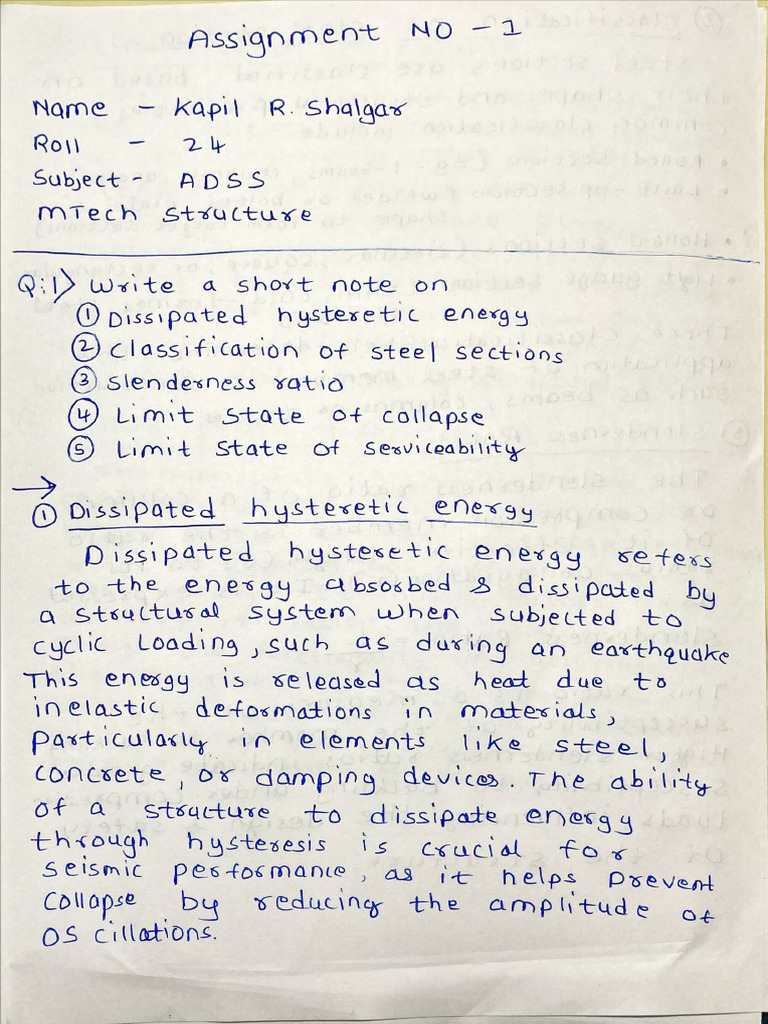 Assignment NO - 1
Name - Kapil R. Shalgar
Roll - 24
Subject - ADSS
MTech Structure
Q:1> Write a short note on
① Dissipated hysteretic energy
② Classification of steel sections
③ Slenderness ratio
④ Limit State of collapse
⑤ Limit State of serviceability
→
① Dissipated hysteretic energy
Dissipated hysteretic energy refers
to the energy absorbed & dissipated by
a structural system when subjected to
cyclic Loading, such as during an earthquake
This energy is released as heat due to
inelastic deformations in materials,
particularly in elements like steel,
concrete, or damping devices. The ability
of a structure to dissipate energy
through hysteresis is crucial for
seismic performance, as it helps prevent
collapse by reducing the amplitude of
oscillations.